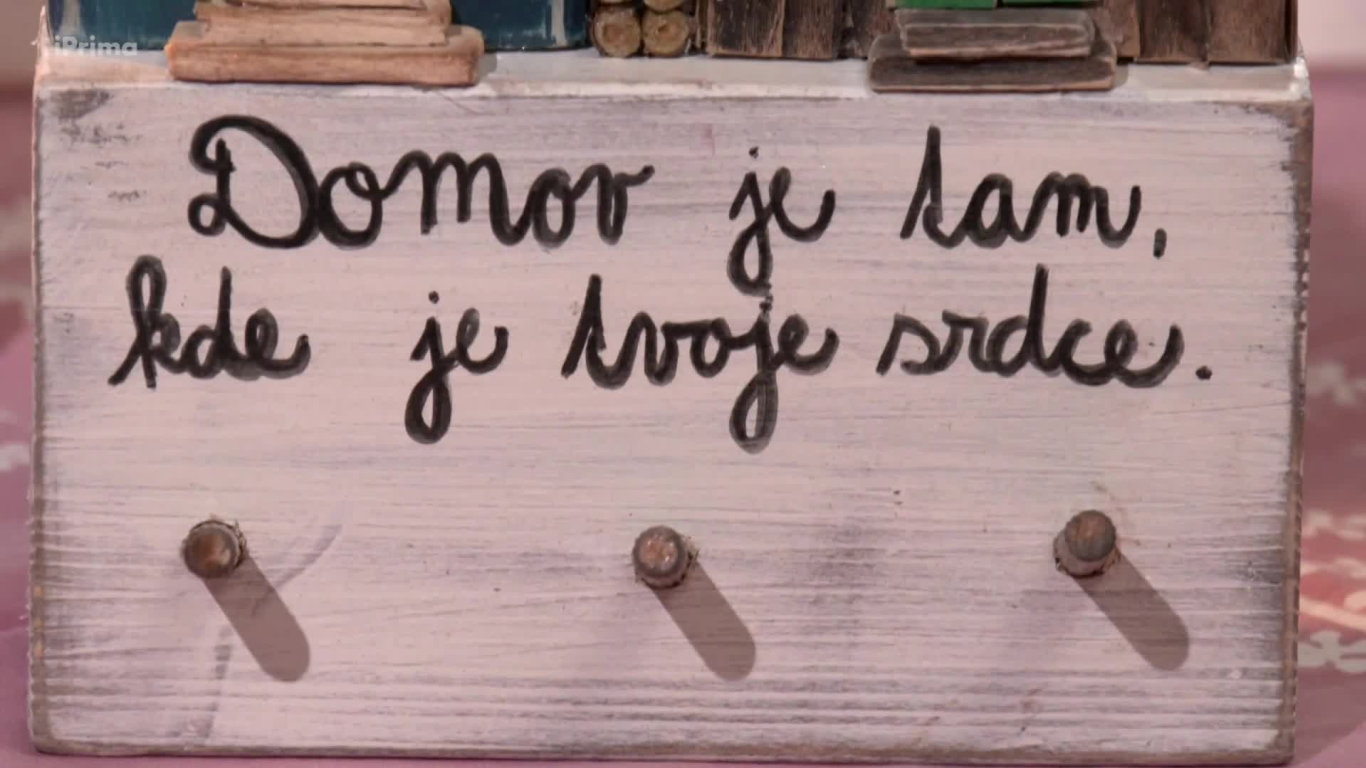 iPrima
Domov je tam,
kde je tvoje srdce.